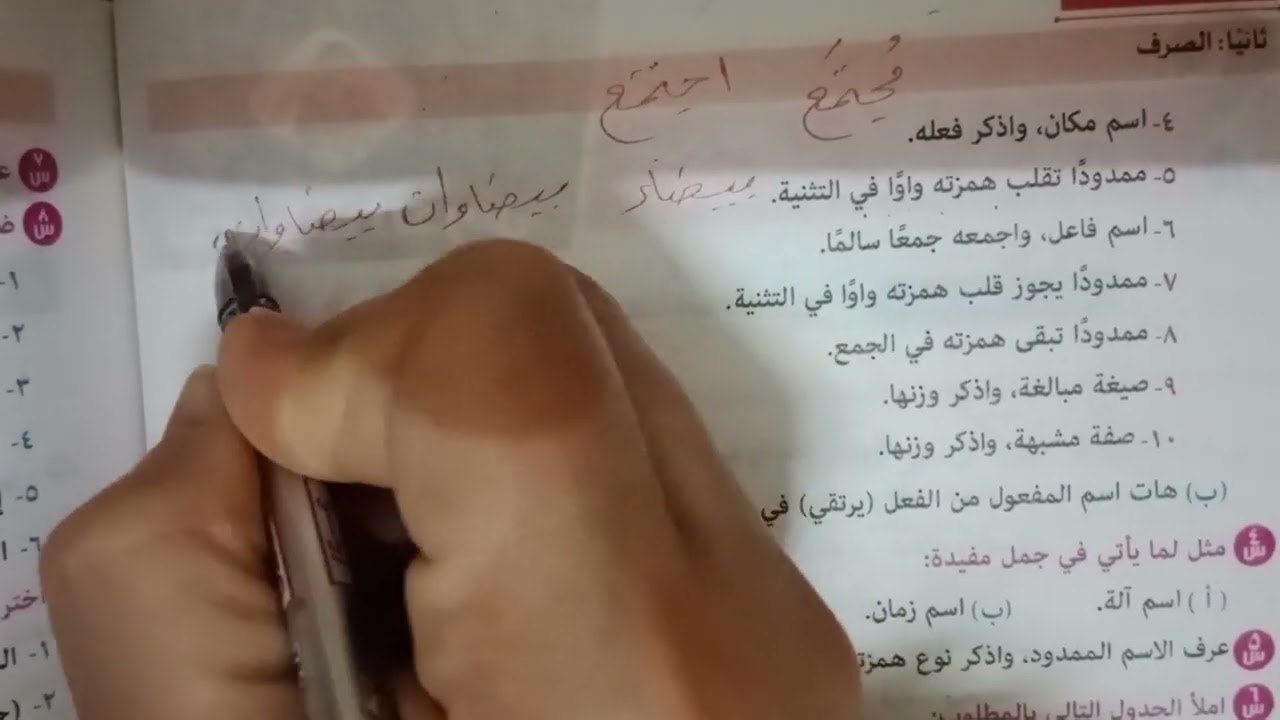 ثانيًا: الصرف
مُجتَمَع اجتمع
٤- اسم مكان، واذكر فعله.
٥- ممدودًا تقلب همزته واوًا في التثنية. بيضاء بيضاوان بيضاوان
٦- اسم فاعل، واجمعه جمعًا سالمًا.
٧- ممدودًا يجوز قلب همزته واوًا في التثنية.
٨- ممدودًا تبقى همزته في الجمع.
٩- صيغة مبالغة، واذكر وزنها.
١٠- صفة مشبهة، واذكر وزنها.
(ب) هات اسم المفعول من الفعل (يرتقي) في
س٤ مثل لما يأتي في جمل مفيدة:
(أ) اسم آلة. (ب) اسم زمان.
س٥ عرف الاسم الممدود، واذكر نوع همزته
س٦ املأ الجدول التالي بالمطلوب:
س٧
س٨
١-
٢-
٣-
٤-
٥-
٦-
اختر
١- ال
٢-